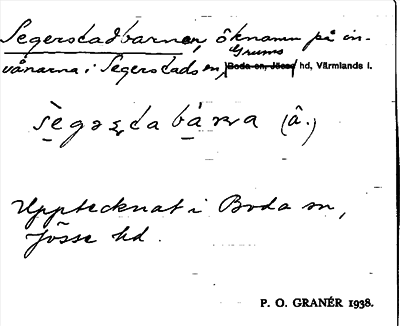 Segerstadbarnen, öknamn på in-
Grums
vånarna i Segerstads sn, Boda sn, Jösse hd, Värmlands l.
(â.)
Upptecknat i Boda sn,
Jösse hd.
P. O. GRANÉR 1938.